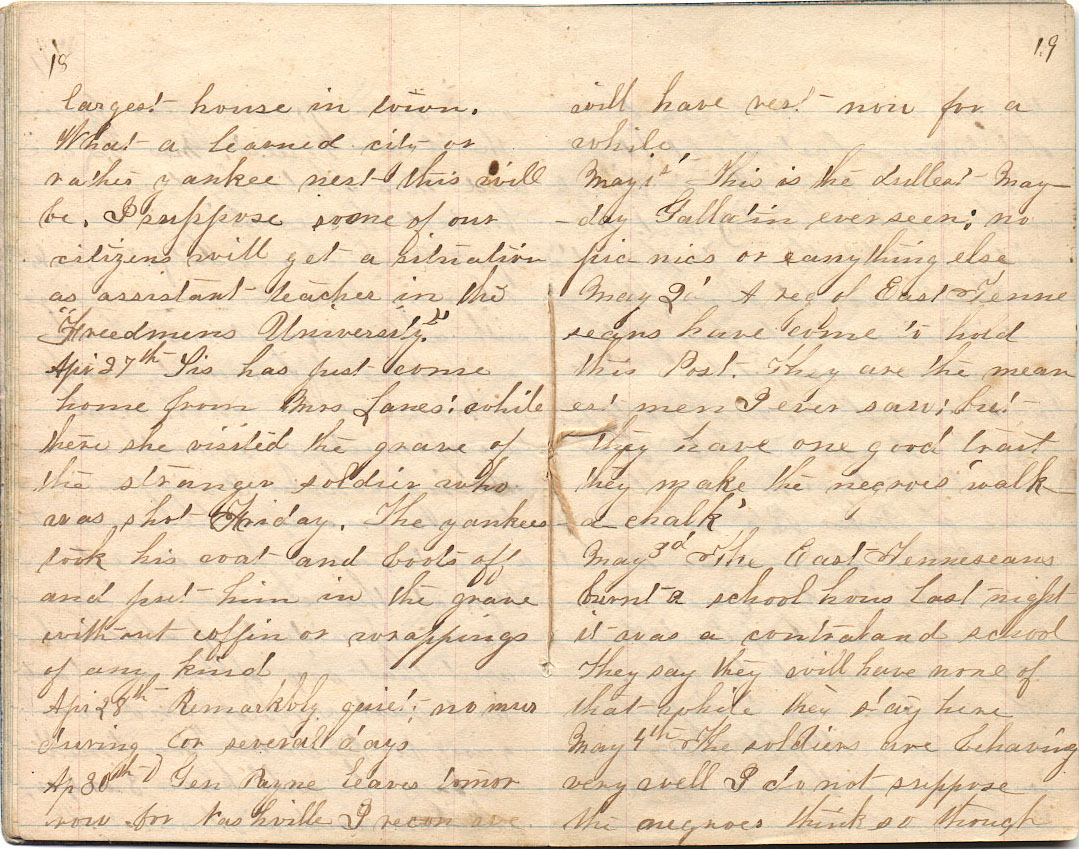 18
largest house in town.
What a learned city or
rather yankee nest this will
be. I suppose some of our
citizens will get a situation
as assistant teacher in the
"Freedmens University."
Apr 27th Sis has just come
home from Mrs Lanes: while
there she visited the grave of
the stranger soldier who
was shot Friday. The yankees
took his coat and boots off
and put him in the grave
without coffin or wrappings
of any kind
Apr 28th Remarkbly quiet; no mur
during for several days
Ap 30th Gen Payne leaves tomor
row for Nashville I recon we
19
will have rest now for a
while
May 1st This is the dullest May-
-day Gallatin ever seen: no
pic nics or eanything else
May 2d A reg of East Tenne
seans have come to hold
this Post. They are the mean
est men I ever saw; but
they have one good trait
they make the negroes 'walk
a chalk'
May 3d The East Tenneseans
burnt a school hous last night
it was a contraband school
They say they will have none of
that while they stay here
May 4th The soldiers are behaving
very well I do not suppose
the negroes think so though